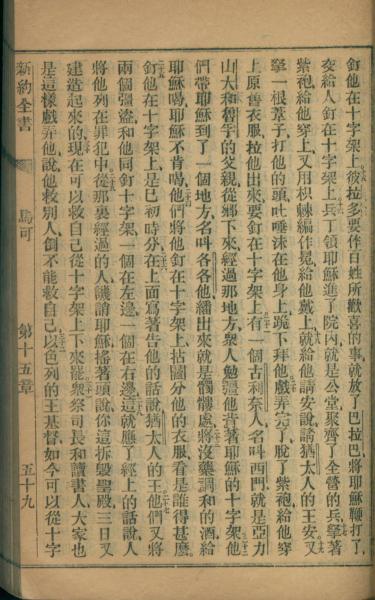 釘他在十字架上彼拉多要作百姓所歡喜的事就放了巴拉巴將耶穌鞭打了
交給人釘在十字架上兵丁領耶穌進了院內就是公堂聚齊了全營的兵拏著
紫袍給他穿上又用棘編作冕給他戴上就給他請安說請猶太人的王安又
拏一根葦子打他的頭吐唾沫在他身上跪下拜他戲弄完了脫了紫袍給他穿
上原舊衣服拉他出來要釘在十字架上有一個古利奈人名叫西門就是亞力
山大和魯孚的父親從鄉下來經過那地方衆人勉强他背著耶穌的十字架他
們帶耶穌到了一個地方名叫各各他繙出來就是髑髏處將沒藥調和的酒給
耶穌喝耶穌不肯喝他們將他釘在十字架上拈鬮分他的衣服看是誰得甚麼
釘他在十字架上是巳初時分在上面寫著告他的話說猶太人的王他們又將
兩個强盜和他同釘十字架一個在左邊一個在右邊這就應了經上的話說人
將他列在罪犯中從那裏經過的人譏誚耶穌搖著頭說你這拆毀聖殿三日又
建造起來的現在可以救自己從十字架上下來罷衆祭司長和讀書人大家也
是這樣戲弄他說他救別人倒不能救自己以色列的王基督如今可以從十字
新約全書 馬可 第十五章 五十九